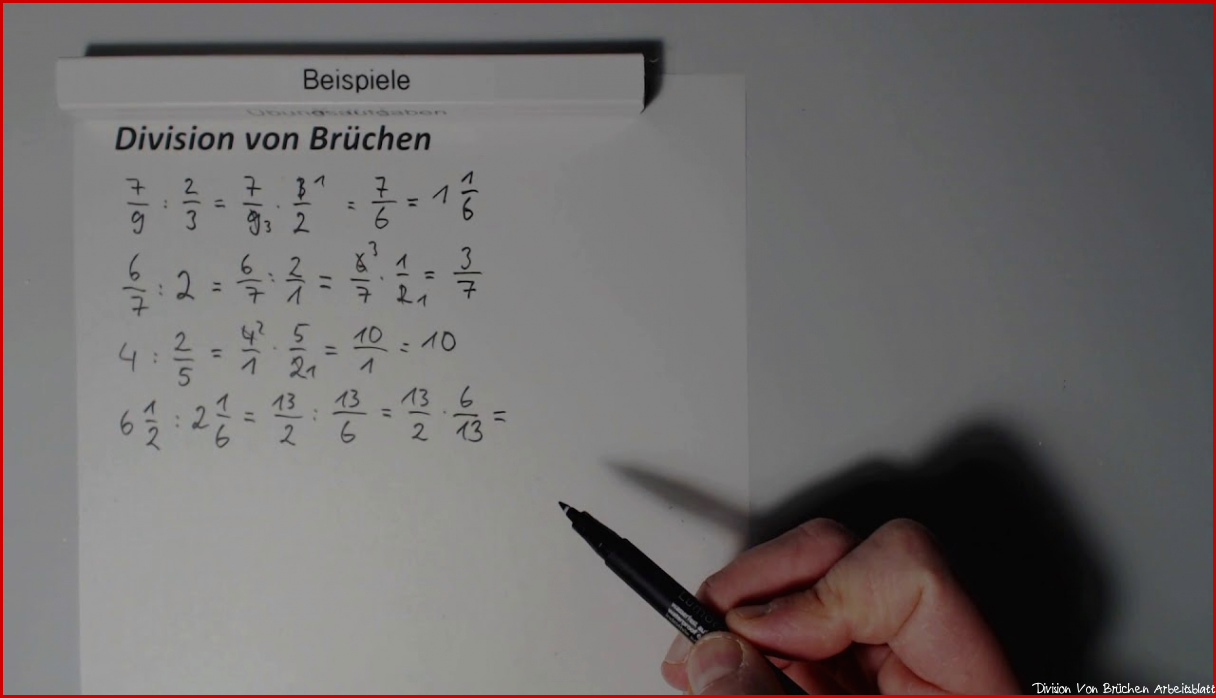 Beispiele
Übungsaufgaben
Division von Brüchen
7/9 : 2/3 = 7/9 3 · 3/2 1 = 7/6 = 1 1/6
6/7 : 2 = 6/7 : 2/1 = 6/7 3 · 1/2 1 = 3/7
4 : 2/5 = 4/1 2 · 5/2 1 = 10/1 = 10
6 1/2 : 2 1/6 = 13/2 : 13/6 = 13/2 · 6/13 =
Division Von Brüchen Arbeitsblatt